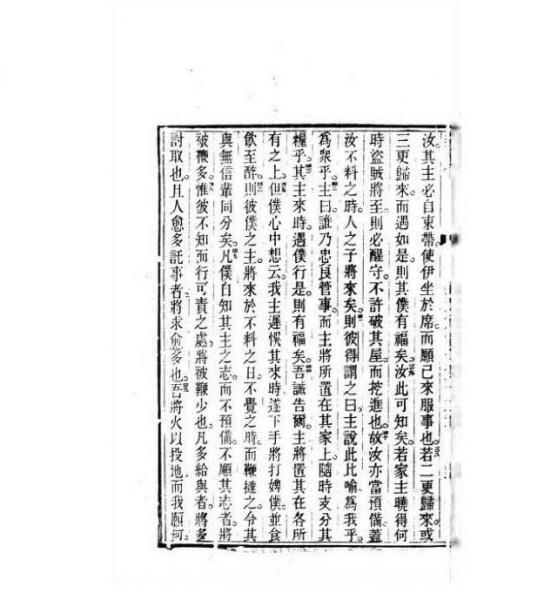 汝其主必自束帶。使伊坐於席。而願己來服事也。若二更歸來。或
三更歸來。而遇如是。則其僕有福矣。汝此可知矣。若家主曉得何
時盜賊將至。則必醒守。不許破其屋。而挖進也。故汝亦當預備。蓋
汝不料之時。人之子將來矣。則彼得謂之曰。主說此比喻。為我乎。
為衆乎。主曰。誰乃忠良管事。而主將所置在其家上。隨時支分其
糧乎。其主來時。遇僕行是。則有福矣。吾誠告爾。主將置其在各所
有之上。但僕心中想云。我主遲悞其來時。遂下手將打婢僕。並食
飲至醉。則彼僕之主。將來於不料之日。不覺之時。而鞭撻之。令其
與無信輩同分矣。凡僕自知其主之志。而不預備。不順其志者。將
被鞭多。惟彼不知而行可責之處。將被鞭少也。凡多給與者。將多
討取也。且人愈多託事者。將求愈多也。吾將火以投地。而我願何。